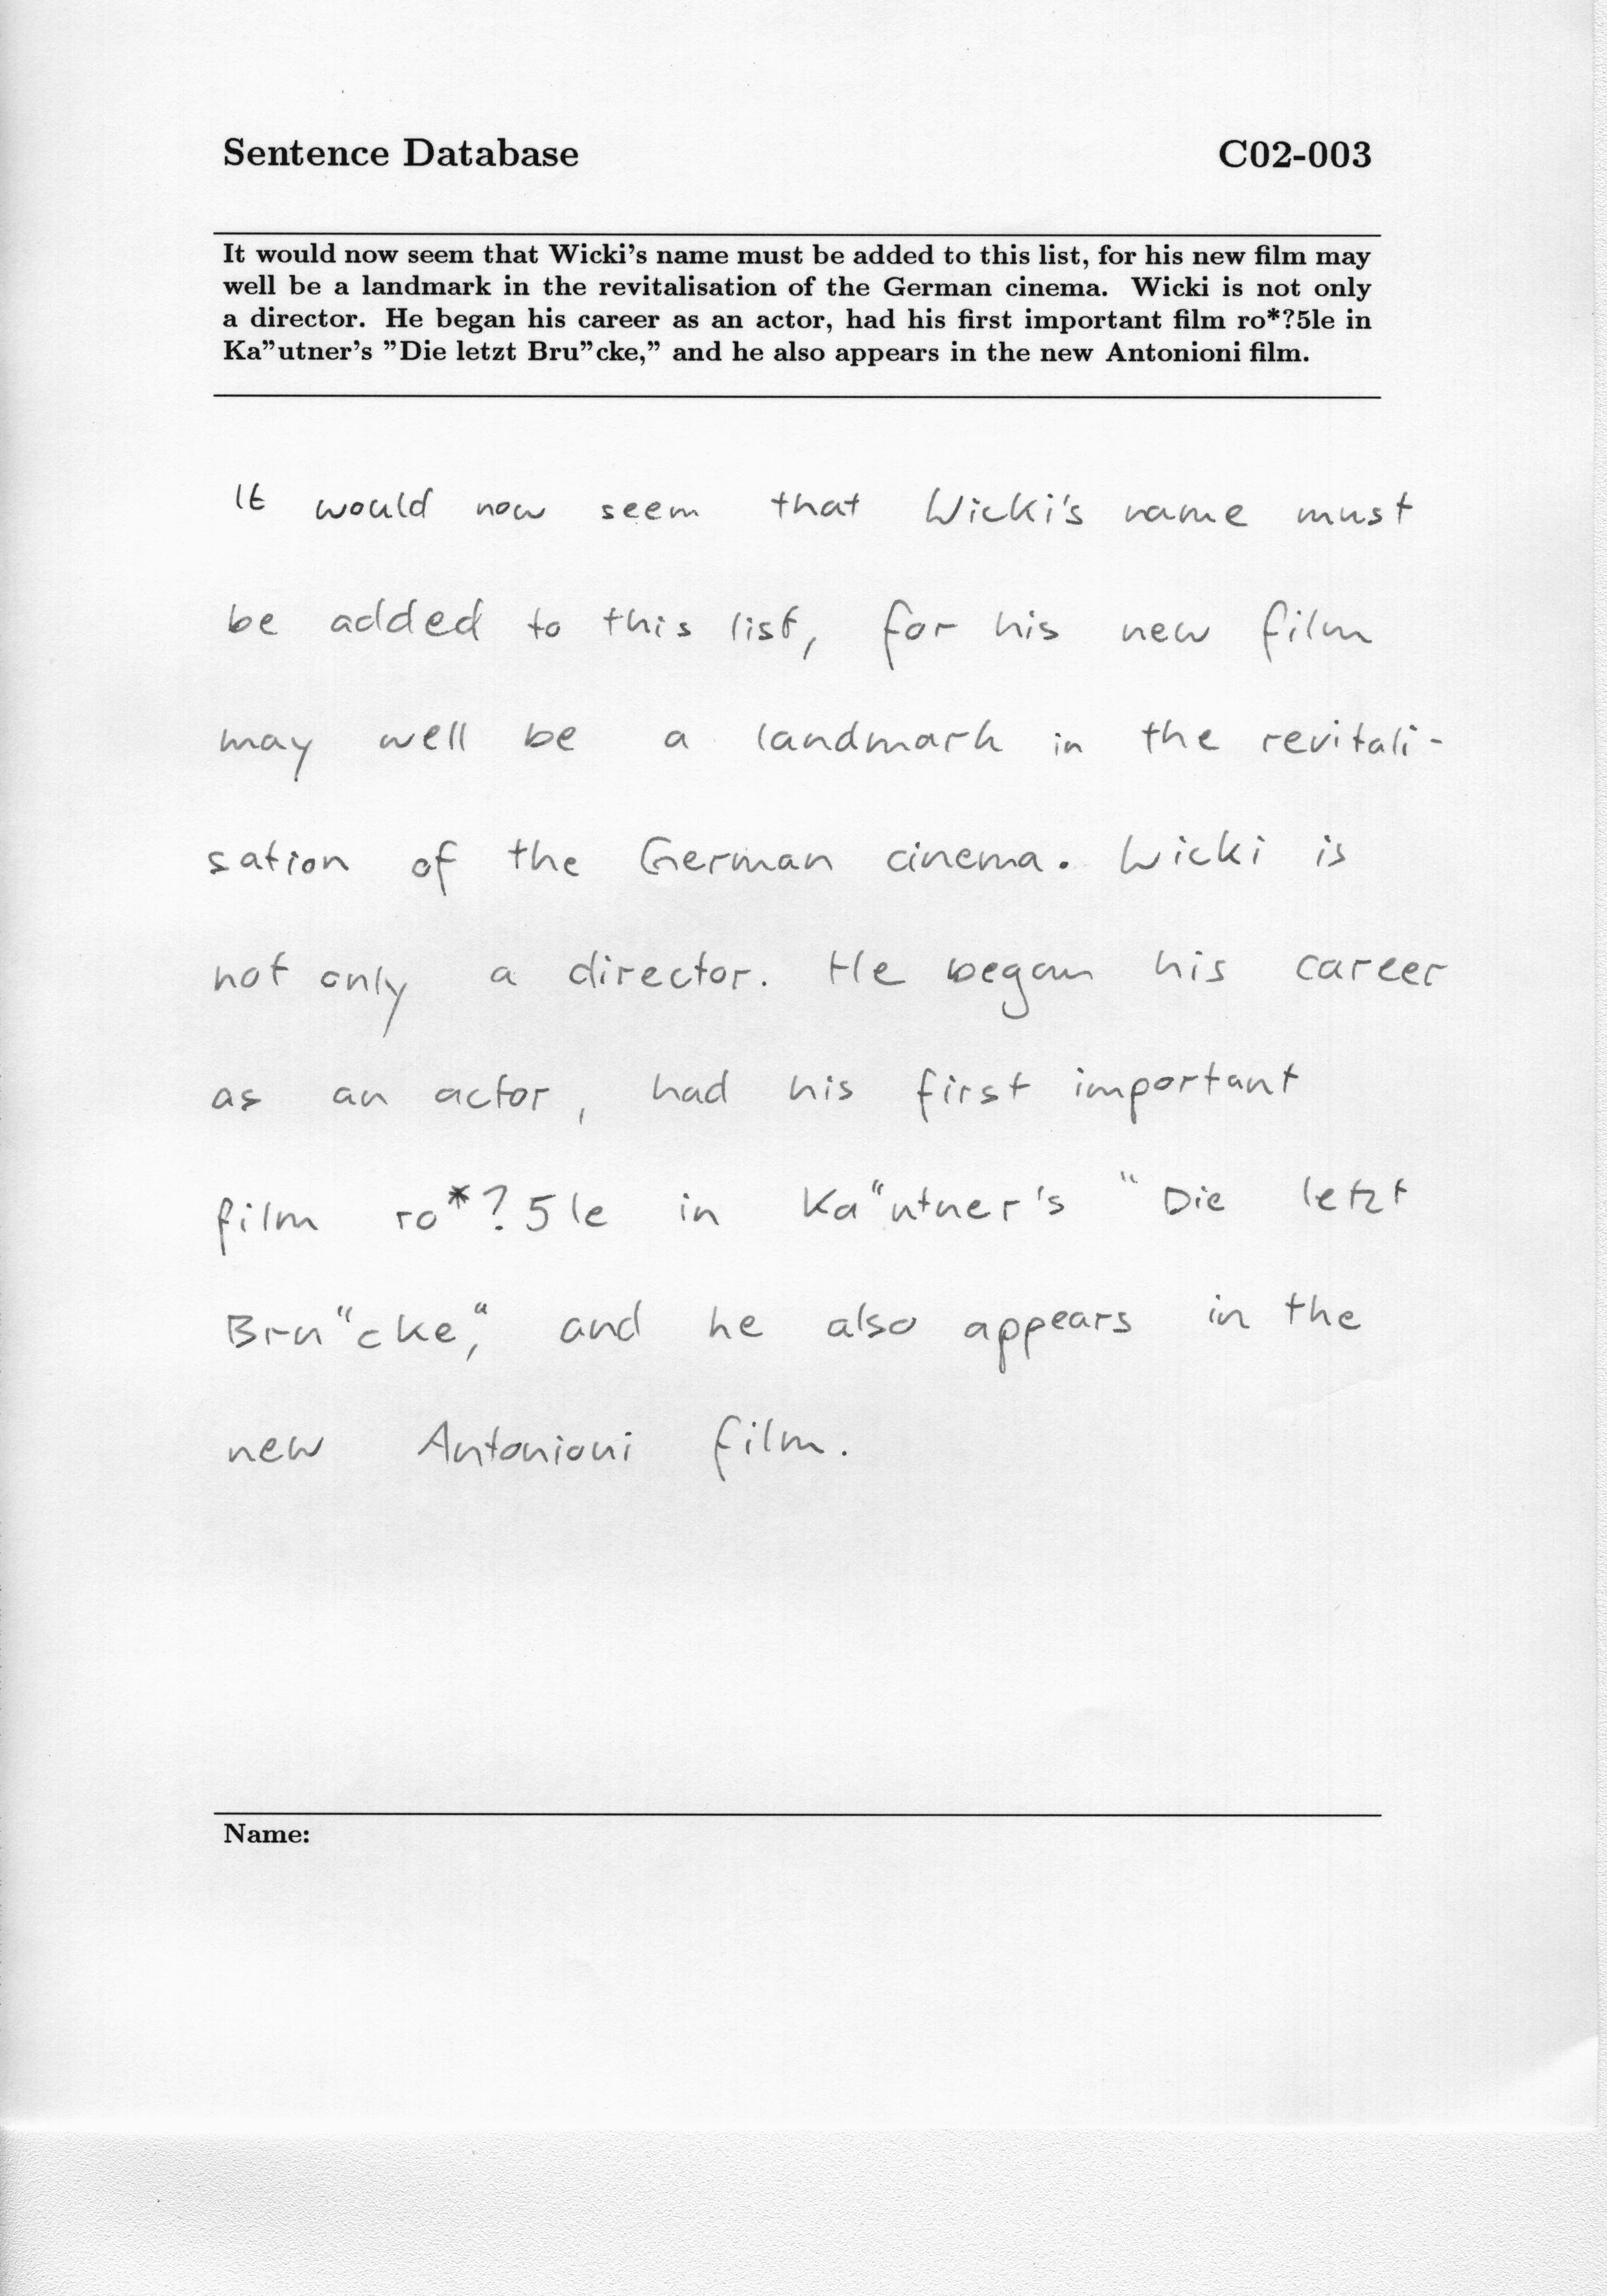 Sentence Database C02-003
It would now seem that Wicki's name must be added to this list, for his new film may
well be a landmark in the revitalisation of the German cinema. Wicki is not only
a director. He began his career as an actor, had his first important film ro*?5le in
Ka”utner's ”Die letzt Bru”cke,” and he also appears in the new Antonioni film.
It would now seem that Wicki's name must
be added to this list, for his new film
may well be a landmark in the revitali-
sation of the German cinema. Wicki is
not only a director. He began his career
as an actor, had his first important
film ro*?5le in Ka“utner's “Die letzt
Bru“cke,“ and he also appears in the
new Antonioni film.
Name: